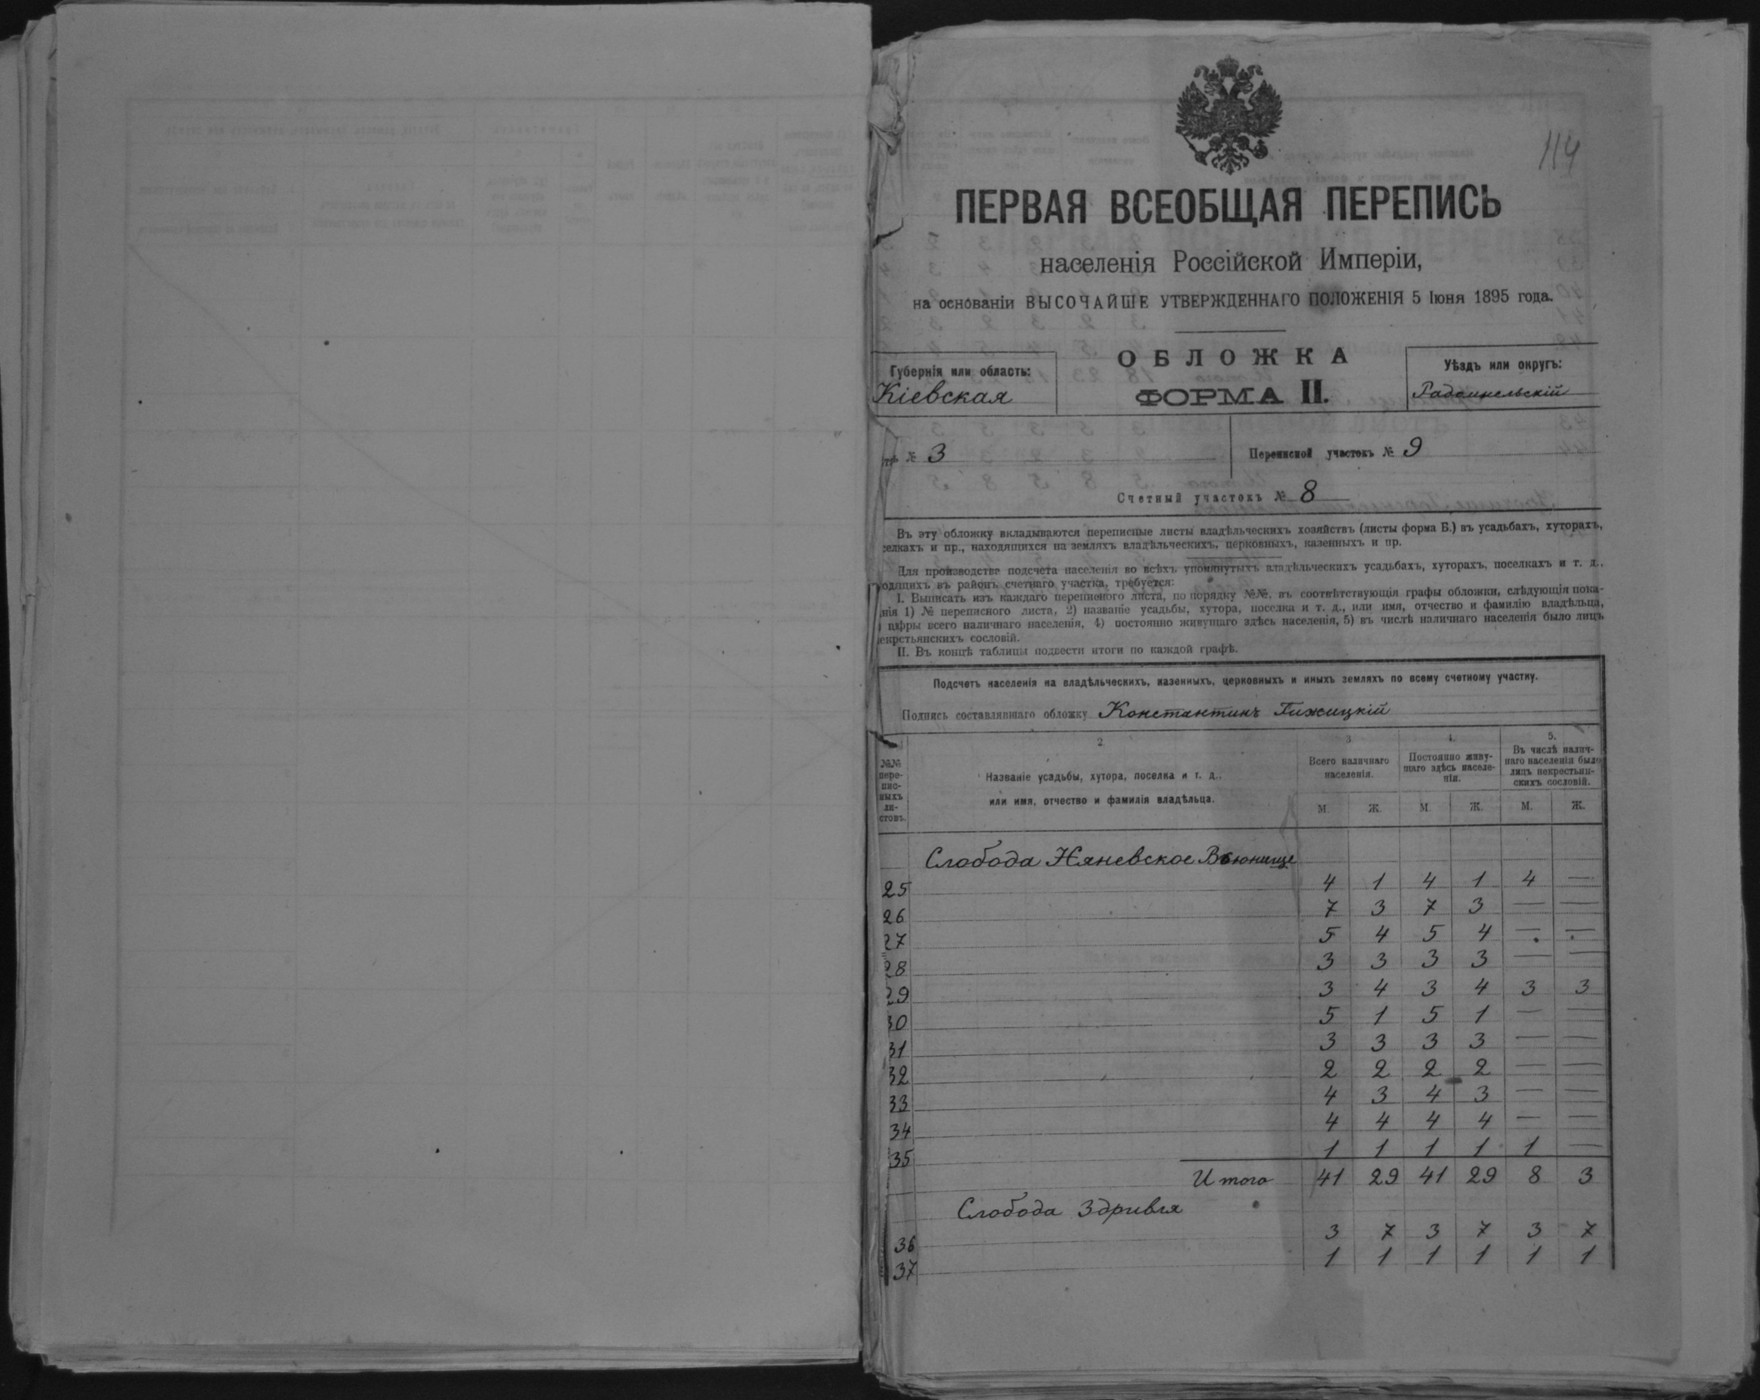 114
ПЕРВАЯ ВСЕОБЩАЯ ПЕРЕПИСЬ
населенія Россійской Имперіи,
на основаніи ВЫСОЧАЙШЕ УТВЕРЖДЕННАГО ПОЛОЖЕНІЯ 5 Іюня 1895 года.
ОБЛОЖКА
ФОРМА II.
Губернія или область:
Кіевская
Уѣздъ или округъ:
Радомысльскій
№ 3
Переписной участокъ № 9
Счетный участокъ № 8
Въ эту обложку вкладываются переписные листы владѣльческихъ хозяйствъ (листы форма Б.) въ усадьбахъ, хуторахъ,
селкахъ и пр., находящихся на земляхъ владѣльческихъ, церковныхъ, казенныхъ и пр.
Для производства подсчета населенія во всѣхъ упомянутыхъ владѣльческихъ усадьбахъ, хуторахъ, поселкахъ и т. д.,
ходящихъ въ районъ счетнаго участка, требуется:
I. Выписать изъ каждаго переписного листа, по порядку №№, въ соотвѣтствующія графы обложки, слѣдующія пока-
нія 1) № переписного листа, 2) названіе усадьбы, хутора, поселка и т. д., или имя, отчество и фамилію владѣльца,
цифры всего наличнаго населенія, 4) постоянно живущаго здѣсь населенія, 5) въ числѣ наличнаго населенія было лицъ
некрестьянскихъ сословій.
II. Въ концѣ таблицы подвести итоги по каждой графѣ.
Подсчетъ населенія на владѣльческихъ, казенныхъ, церковныхъ и иныхъ земляхъ по всему счетному участку.
Подпись составлявшаго обложку Константинъ Гижицкій
2 3 4. 5.
№№ пере-пис-ныхъ ли-стовъ.
Названіе усадьбы, хутора, поселка и т. д.,
или имя, отчество и фамилія владѣльца.
Всего наличнаго населенія.
Постоянно живу-щаго здѣсь населе-нія.
Въ числѣ налич-наго населенія было лицъ некрестьян-скихъ сословій.
М. Ж. М. Ж. М. Ж.
Слобода Няневское Вьюнище
25 4 1 4 1 4 —
26 7 3 7 3 — —
27 5 4 5 4 — —
28 3 3 3 3 — —
29 3 4 3 4 3 3
30 5 1 5 1 — —
31 3 3 3 3 — —
32 2 2 2 2 — —
33 4 3 4 3 — —
34 4 4 4 4 — —
35 1 1 1 1 1 —
Итого 41 29 41 29 8 3
Слобода Здривля
36 3 7 3 7 3 7
37 1 1 1 1 1 1